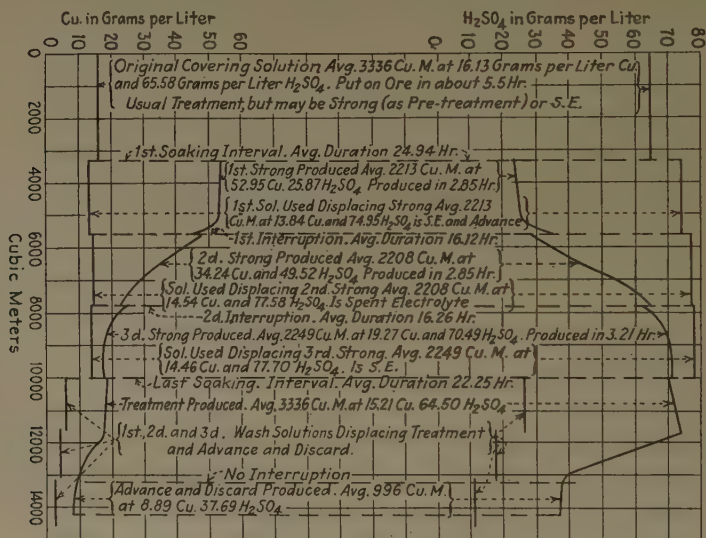 Cu. in Grams per Liter
H₂SO₄ in Grams per Liter
0 10 20 30 40 50 60
0 10 20 30 40 50 60 70 80
Original Covering Solution Avg. 3336 Cu. M. at 16.13 Grams per Liter Cu.
and 65.58 Grams per Liter H₂SO₄. Put on Ore in about 5.5 Hr.
Usual Treatment, but may be Strong (as Pre-treatment) or S.E.
1st. Soaking Interval. Avg. Duration 24.94 Hr.
1st. Strong Produced Avg. 2213 Cu. M. at
52.95 Cu. 25.87 H₂SO₄ Produced in 2.85 Hr.
1st. Sol. Used Displacing Strong Avg. 2213
Cu. M. at 13.84 Cu. and 74.95 H₂SO₄ is S.E. and Advance
1st. Interruption. Avg. Duration 16.12 Hr.
2d. Strong Produced Avg. 2208 Cu. M. at
34.24 Cu. and 49.52 H₂SO₄ Produced in 2.85 Hr.
Sol. Used Displacing 2nd. Strong Avg. 2208 Cu. M. at
14.54 Cu. and 77.58 H₂SO₄. Is Spent Electrolyte
2d. Interruption. Avg. Duration 16.26 Hr.
3d. Strong Produced. Avg. 2249 Cu. M. at 19.27 Cu. and 70.49 H₂SO₄. Produced in 3.21 Hr.
Sol. Used Displacing 3rd. Strong. Avg. 2249 Cu. M. at
14.46 Cu. and 77.70 H₂SO₄. Is S.E.
Last Soaking. Interval. Avg. Duration 22.25 Hr.
Treatment Produced. Avg. 3336 Cu. M. at 15.21 Cu. 64.50 H₂SO₄
1st., 2d. and 3d. Wash Solutions Displacing Treatment
and Advance and Discard.
No Interruption
Advance and Discard Produced. Avg. 996 Cu. M.
at 8.89 Cu. 37.69 H₂SO₄
Cubic Meters
0
2000
4000
6000
8000
10000
12000
14000